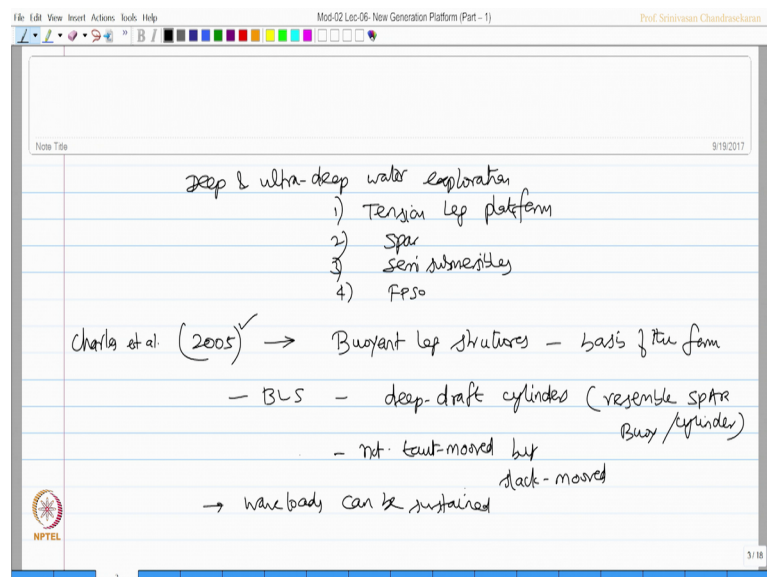 File Edit View Insert Actions Tools Help
Mod-02 Lec-06- New Generation Platform (Part – 1)
Prof. Srinivasan Chandrasekaran
B I
Note Title
9/19/2017
Deep & ultra-deep water exploration
1) Tension Leg platform
2) Spar
3) Semi submersibles
4) FPSO
Charles et al. (2005) ✓ → Buoyant leg structures – basis of the form
– BLS – deep-draft cylinder (resemble SPAR
Buoy /cylinder)
– not taut-moored but
slack-moored
→ wave loads can be sustained
NPTEL
3 / 18